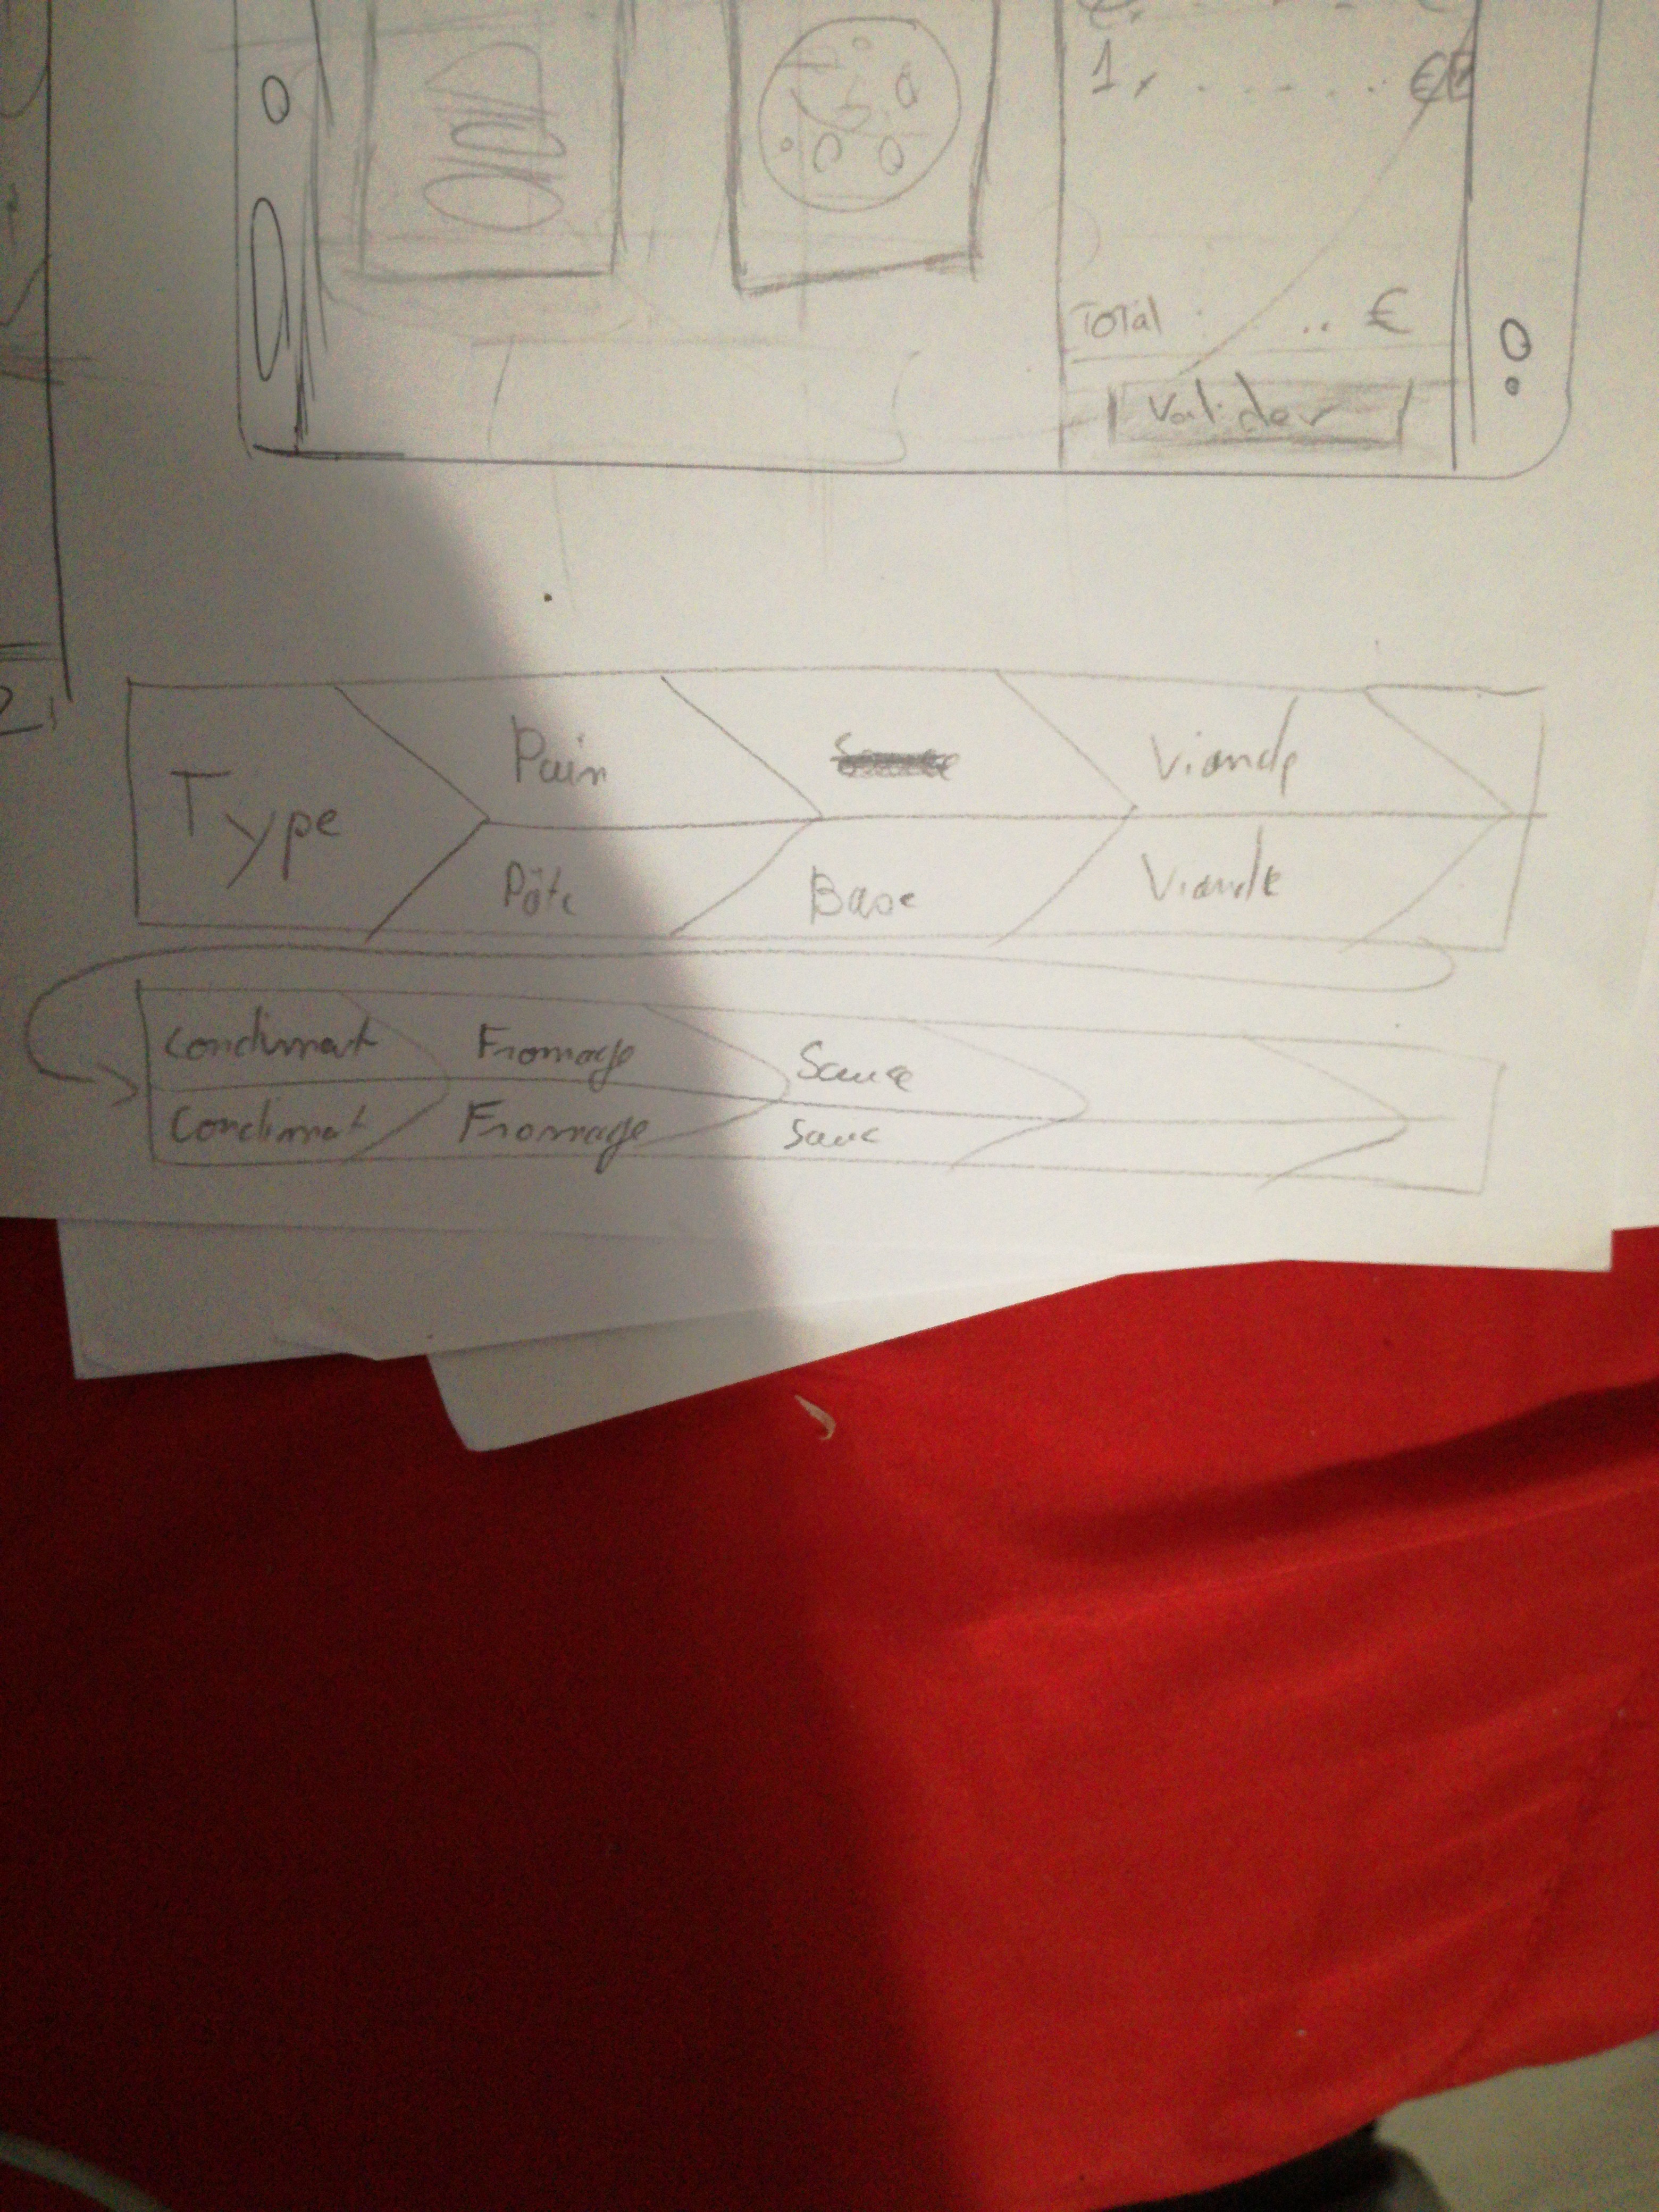 1 x . . . . . . €
Total . .. €
Valider
Pain Viande
Type
Pâte Base Viande
Condimat Fromage Sauce
Condimat Fromage Sauc